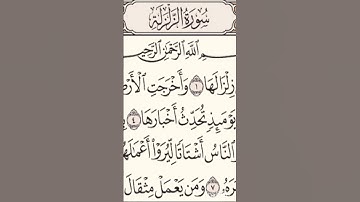 سُورَةُ الزَّلْزَلَةِ
سْمِ ٱللَّهِ ٱلرَّحْمَٰنِ ٱلرَّحِيمِ
زِلْزَالَهَا ١ وَأَخْرَجَتِ ٱلْأَرْضُ
يَوْمَئِذٍ تُحَدِّثُ أَخْبَارَهَا ٤
ٱلنَّاسُ أَشْتَاتًا لِّيُرَوْا۟ أَعْمَٰلَهُ
رَهُۥ ٧ وَمَن يَعْمَلْ مِثْقَالَ